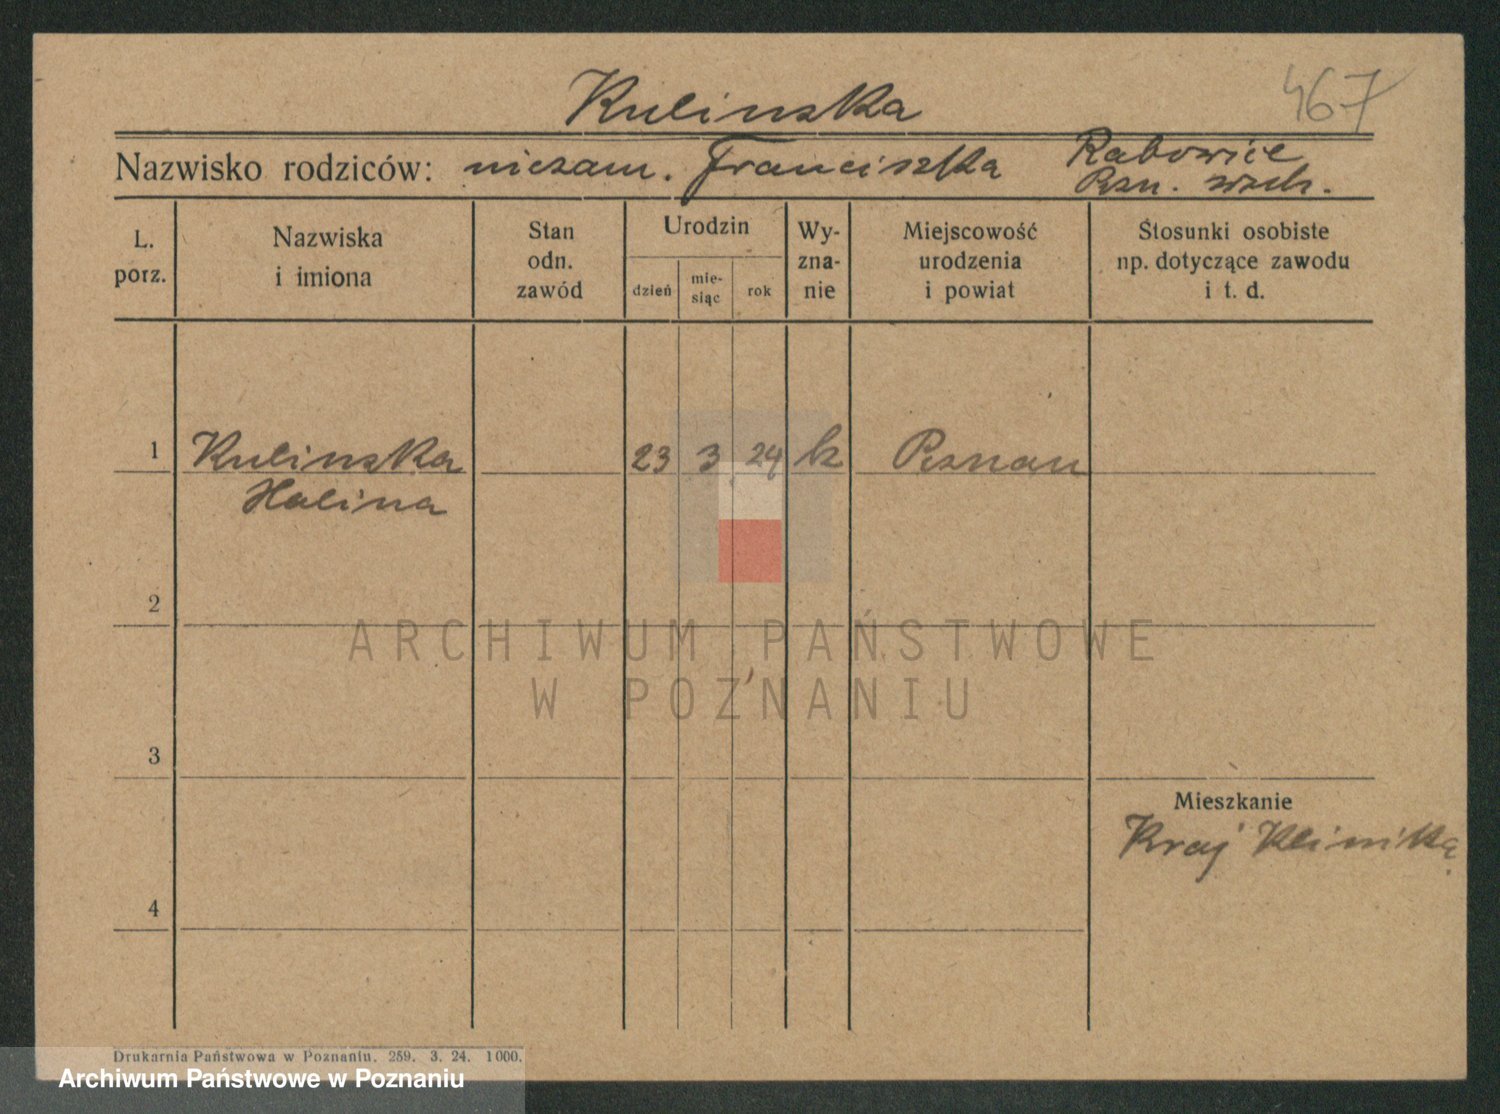 Kulinska
467
Nazwisko rodziców: niezam. Franciszka Rabowice
Pzn. wsch.
L. porz.
Nazwiska i imiona
Stan odn. zawód
Urodzin
dzień
mie-siąc
rok
Wy-zna-nie
Miejscowość urodzenia i powiat
Stosunki osobiste np. dotyczące zawodu i t. d.
1 Kulinska 23 3 24 Poznan
Halina
2
ARCHIWUM PAŃSTWOWE
W POZNANIU
3
Mieszkanie
Kraj Klinika
4
Drukarnia Państwowa w Poznaniu. 259. 3. 24. 1000.
Archiwum Państwowe w Poznaniu